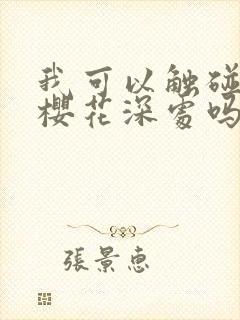 我可以触碰
樱花深处吗
張景惠